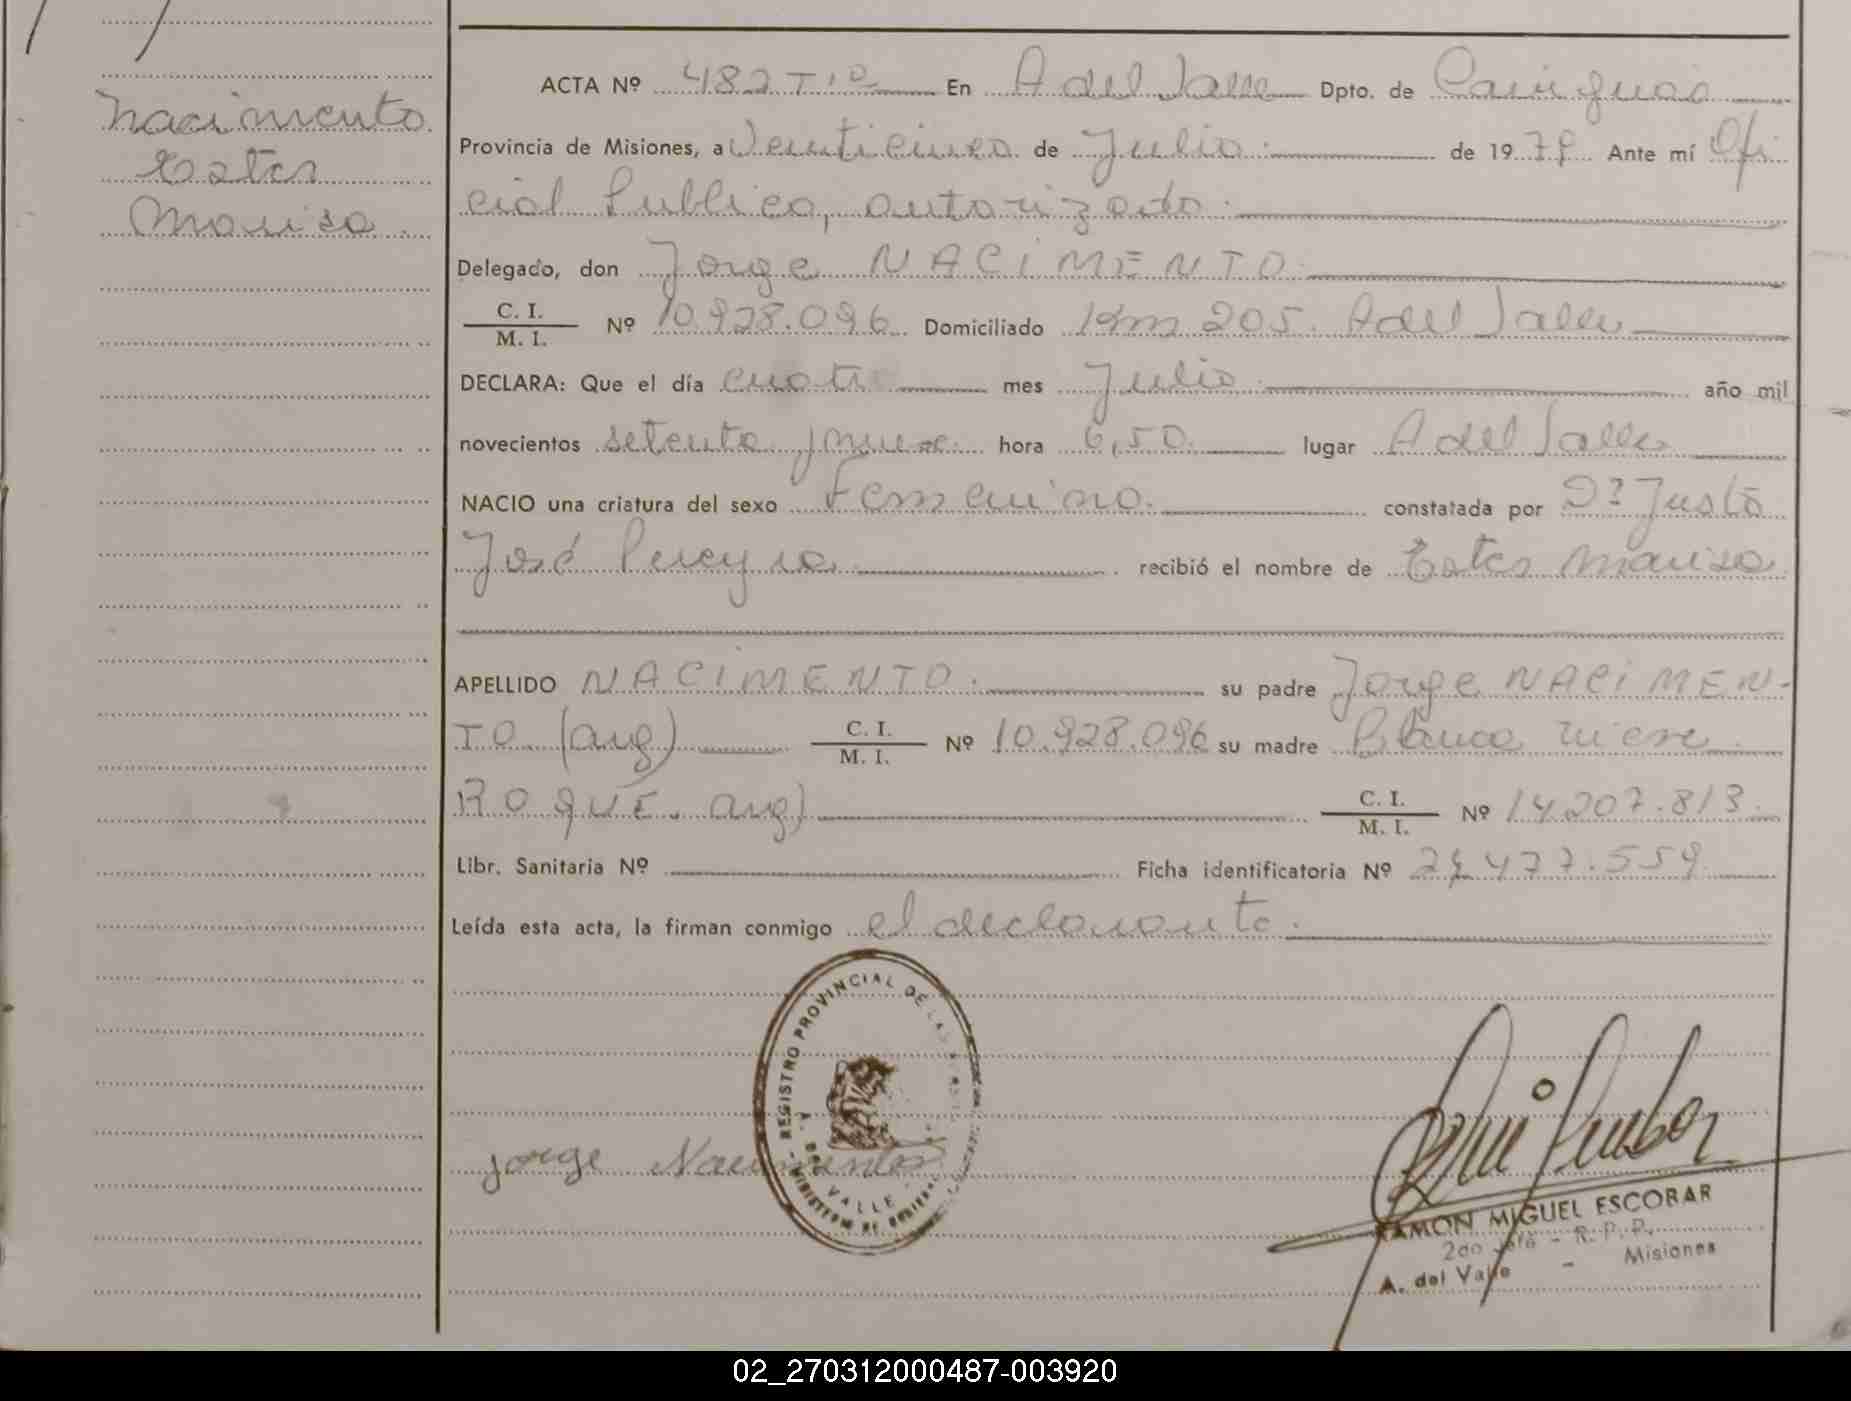 Nacimento
Ester
Marisa
ACTA Nº 482 Tº En A del Valle Dpto. de Cainguas
Provincia de Misiones, a Veinticinco de Julio de 1979 Ante mí Ofi
cial Publico, autorizado
Delegado, don Jorge NACIMENTO
C. I.
M. I. Nº 10.928.096 Domiciliado Km 205. A del Valle
DECLARA: Que el día cuatro mes Julio año mil
novecientos setenta y nueve hora 6,50 lugar A del Valle
NACIO una criatura del sexo Femenino. constatada por Dº Justo
José Pereyra recibió el nombre de Ester Marisa
APELLIDO NACIMENTO. su padre Jorge NACIMEN-
TO (arg) C. I.
M. I. Nº 10.928.096 su madre Blanca
ROQUE. arg) C. I.
M. I. Nº 14.207.813.
Libr. Sanitaria Nº Ficha identificatoria Nº 477.559
Leída esta acta, la firman conmigo el declarante.
REGISTRO PROVINCIAL DE LAS
A. DEL VALLE
MINISTERIO DE GOBIERNO
Jorge Nacimento
RAMON MIGUEL ESCOBAR
2do Jefe - R. P. P.
A. del Valle - Misiones
02_270312000487-003920